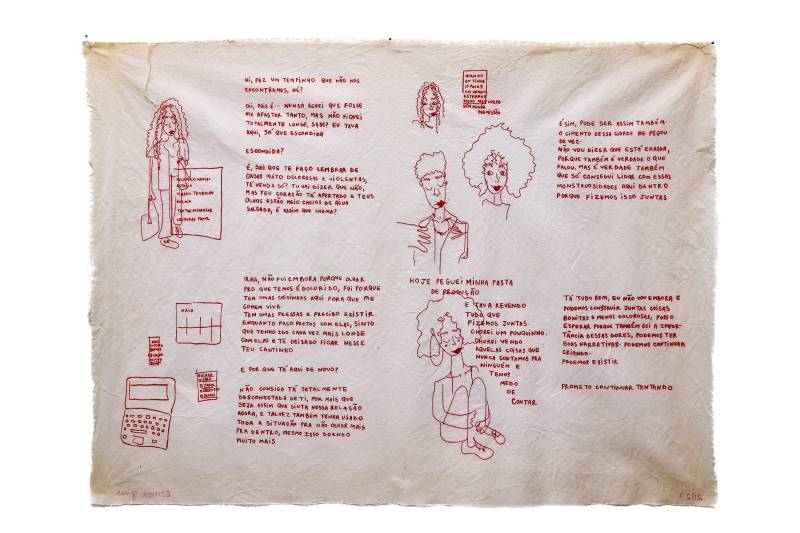 OI, FAZ UM TEMPINHO QUE NÃO NOS
ENCONTRAMOS, NÉ?
OI, POIS É... NUNCA ACHEI QUE FOSSE
ME AFASTAR TANTO, MAS NÃO FIQUEI
TOTALMENTE LONGE, SABE? EU TAVA
AQUI, SÓ QUE ESCONDIDA
ESCONDIDA?
É, SEI QUE TE FAÇO LEMBRAR DE
COISAS MUITO DOLOROSAS E VIOLENTAS,
TÁ VENDO SÓ? TU VAI DIZER QUE NÃO,
MAS TEU CORAÇÃO TÁ APERTADO E TEUS
OLHOS ESTÃO MEIO CHEIOS DE ÁGUA
SALGADA, É ASSIM QUE CHAMA?
QUANDO
EU TINHA
PERMISSÃO
É SIM, PODE SER ASSIM TAMBÉM
O CIMENTO DESSA CIDADE ME PEGOU
DE VEZ
NÃO VOU DIZER QUE ESTÁ ERRADA,
PORQUE TAMBÉM É VERDADE O QUE
FALOU, MAS É VERDADE TAMBÉM
QUE SÓ CONSEGUI LIDAR COM ESSAS
MONSTRUOSIDADES AQUI DENTRO
PORQUE FIZEMOS ISSO JUNTAS
MAIO
OLHA, NÃO FUI EMBORA PORQUE OLHAR
PRO QUE TEMOS É DOLORIDO, FUI PORQUE
TEM UMAS COISINHAS AQUI FORA QUE ME
COMEM VIVA
TEM UMAS PRESSAS E PRECISO EXISTIR
ENQUANTO FAÇO PACTOS COM ELAS, SINTO
QUE TENHO IDO CADA VEZ MAIS LONGE
COM ELAS E TE DEIXADO FICAR NESSE
TEU CANTINHO
E POR QUE TÁ AQUI DE NOVO?
NÃO CONSIGO TÁ TOTALMENTE
DESCONECTADA DE TI, POR MAIS QUE
SEJA ASSIM QUE SINTA NOSSA RELAÇÃO
AGORA, E TALVEZ TAMBÉM TENHA USADO
TODA A SITUAÇÃO PRA NÃO OLHAR MAIS
PRA DENTRO, MESMO ISSO DOENDO
MUITO MAIS
HOJE PEGUEI MINHA PASTA
DE PRODUÇÃO
E TAVA REVENDO
TUDO QUE
FIZEMOS JUNTAS.
CHOREI UM POUQUINHO.
CHOREI VENDO
AQUELAS COISAS QUE
NUNCA CONTAMOS PRA
NINGUÉM E
TEMOS
MEDO
DE
CONTAR
TÁ TUDO BEM, EU NÃO VOU EMBORA E
PODEMOS CONSTRUIR JUNTAS COISAS
BONITAS E MENOS DOLOROSAS, POSSO
ESPERAR PORQUE TAMBÉM SEI A IMPOR-
TÂNCIA DESSAS DORES, PODEMOS TER
BOAS NARRATIVAS. PODEMOS CONTINUAR
CRIANDO.
PODEMOS EXISTIR
PROMETO CONTINUAR TENTANDO